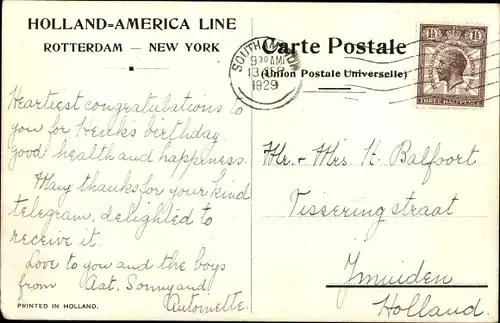 HOLLAND=AMERICA LINE
ROTTERDAM — NEW YORK
Carte Postale
(Union Postale Universelle)
SOUTHAMPTON
9 30 AM
1929
1½ 1½
THREE HALFPENCE
Heartiest congratulations to
you for Henk's birthday.
good health and happiness.
Many thanks for your kind
telegram, delighted to
receive it.
Love to you and the boys
from Aat. Sonny and
Antoinette.
Mr. + Mrs H. Balfoort
Tisseringstraat
Ymuiden
Holland.
PRINTED IN HOLLAND.